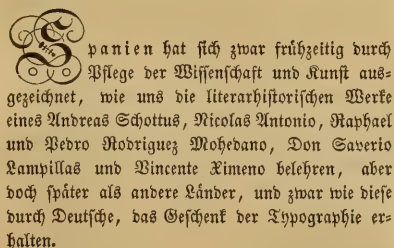 Spanien hat sich zwar frühzeitig durch
Pflege der Wissenschaft und Kunst aus-
gezeichnet, wie uns die literarhistorischen Werke
eines Andreas Schottus, Nicolas Antonio, Raphael
und Pedro Rodriguez Mohedano, Don Saverio
Lampillas und Vincente Ximeno belehren, aber
doch später als andere Länder, und zwar wie diese
durch Deutsche, das Geschenk der Typographie er-
halten.